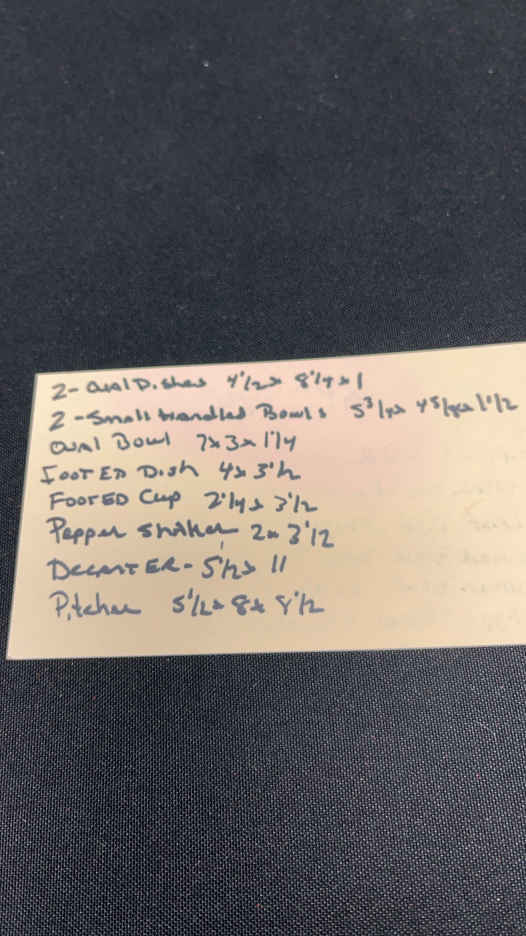 2- Oval Dishes 4 1/2 x 8 1/4 x 1
2 - Small Handled Bowls 5 3/4 x 4 5/8 x 1 1/2
Oval Bowl 7 x 3 x 1 1/4
FOOTED Dish 4 x 3 1/2
FOOTED Cup 2 1/4 x 3 1/2
Pepper Shaker 2 x 3 1/2
DECANTER - 5 1/2 x 11
Pitcher 5 1/2 x 8 x 8 1/2